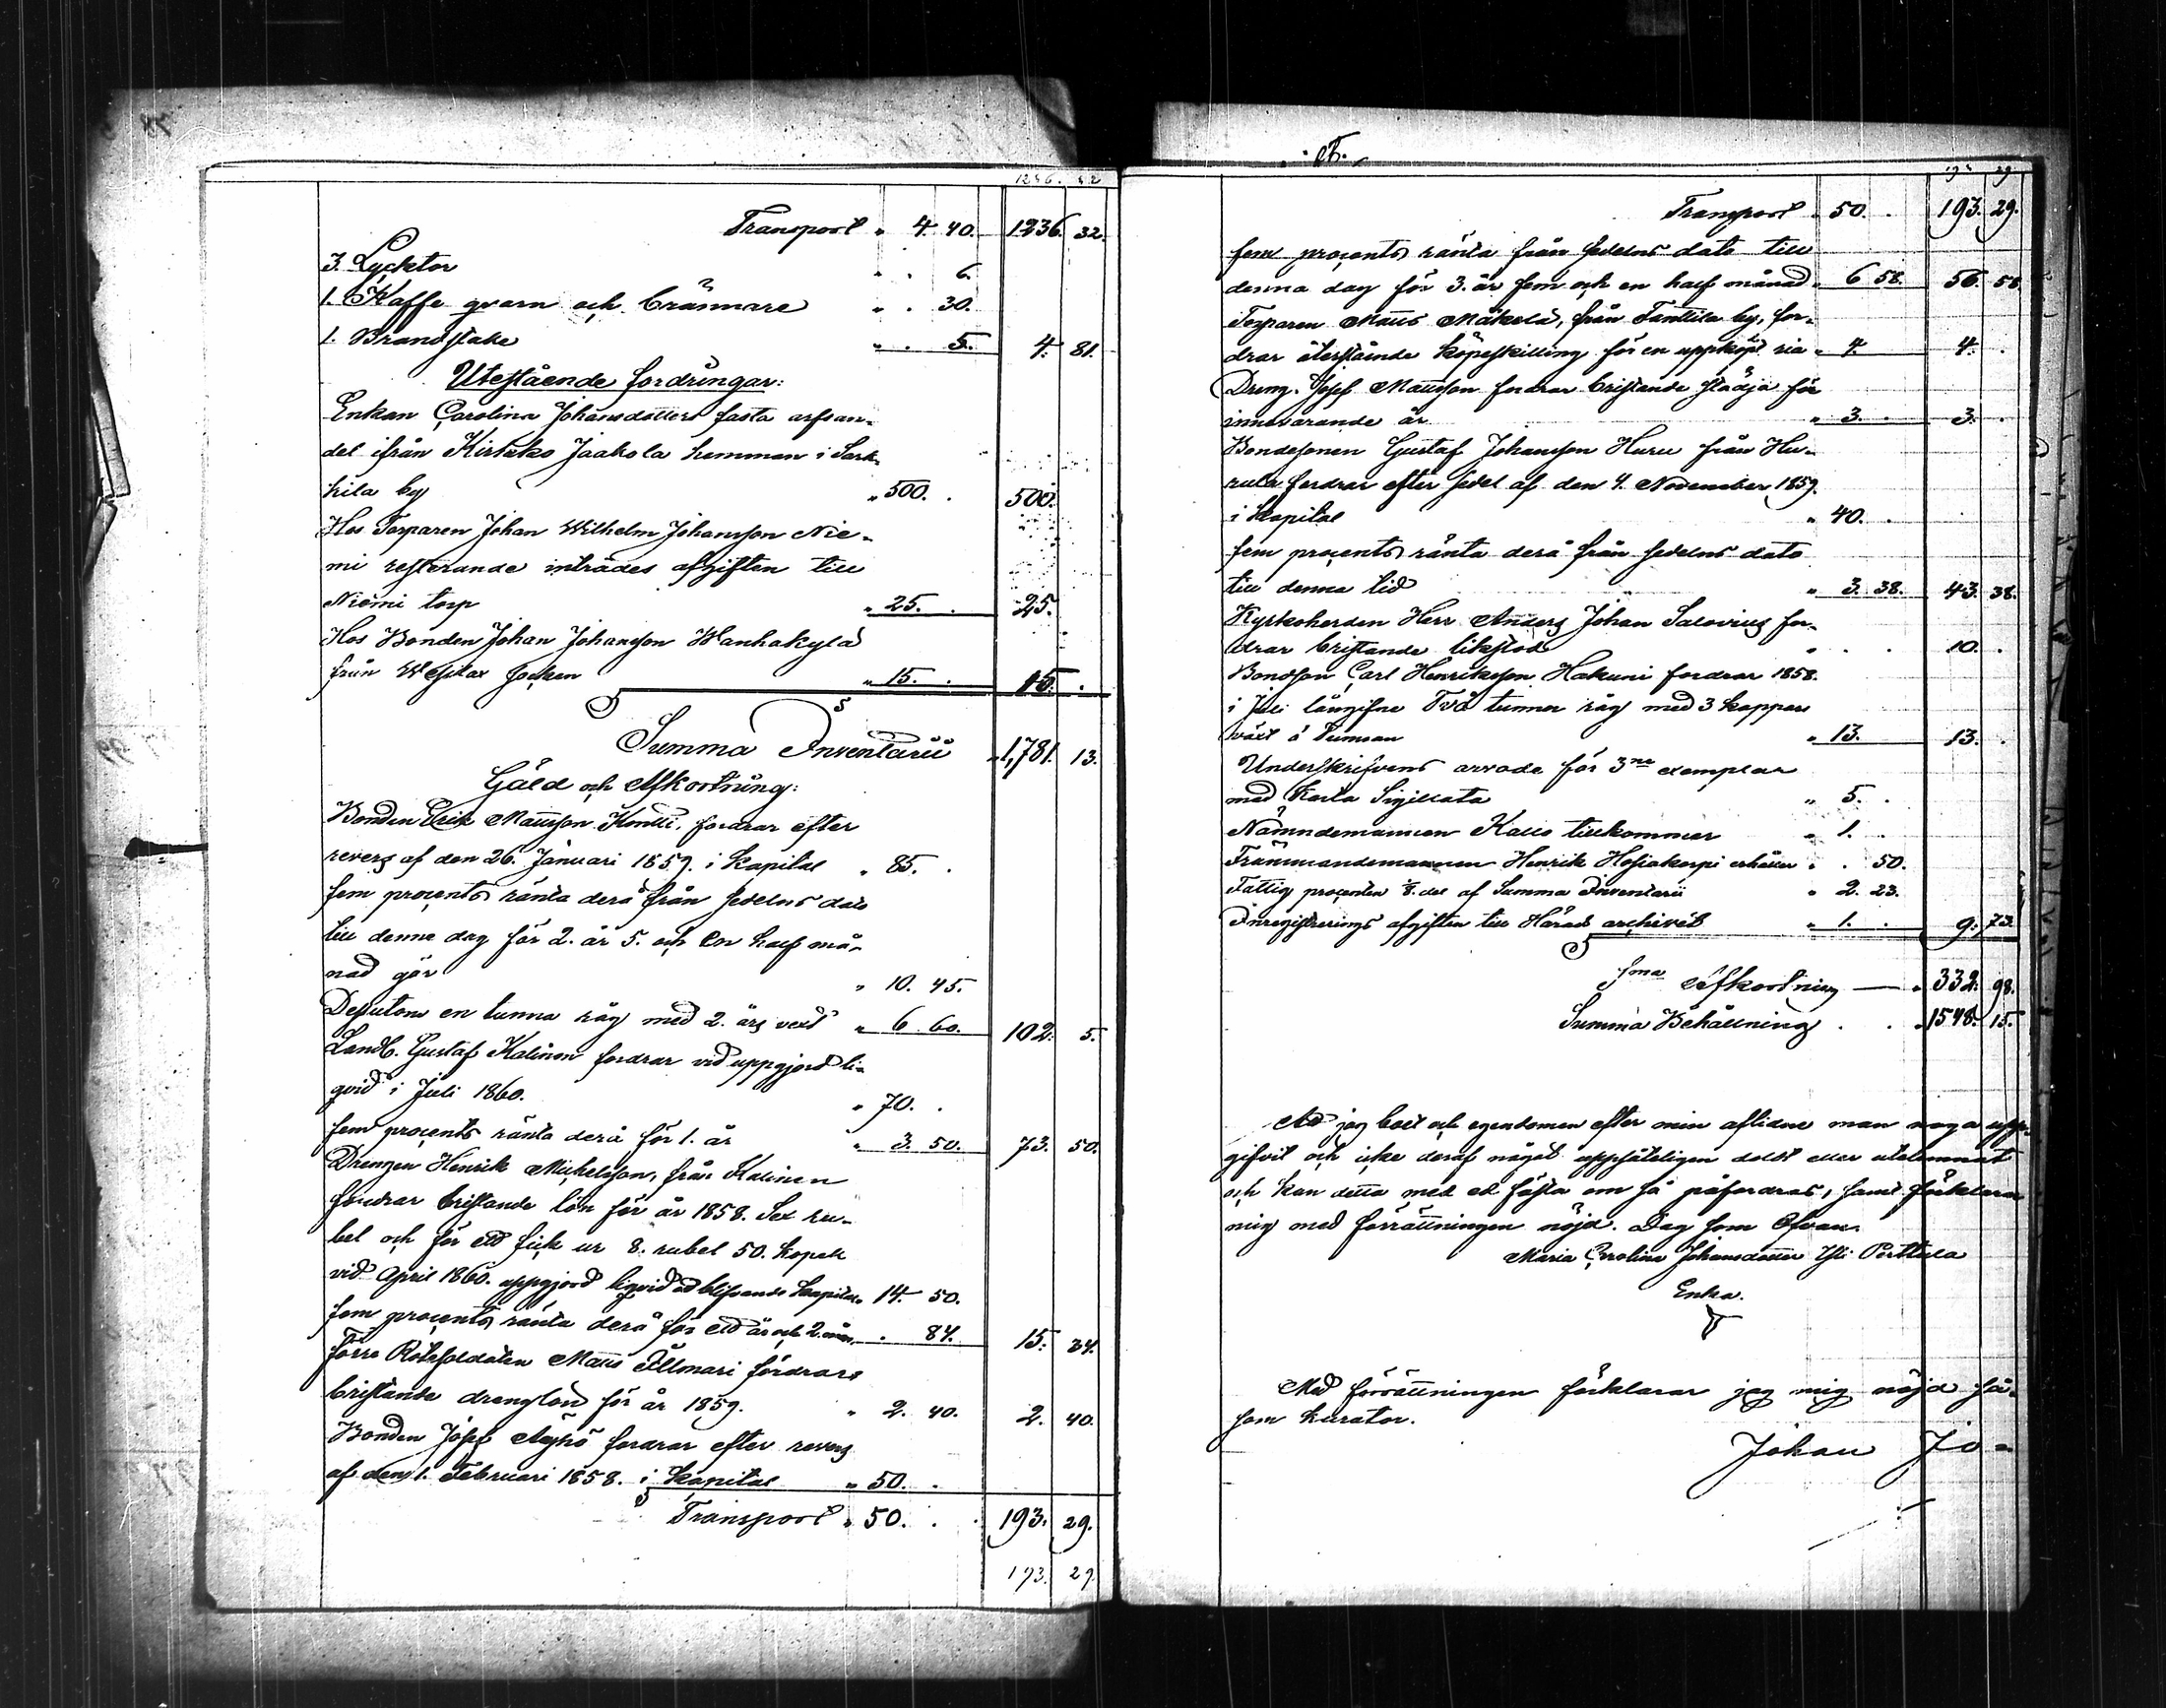 1236. 32
Transport " 4. 40. 1236. 32.
3. Lycktor " . 6.
1. Kaffe qvarn och brännare " . 30.
1. Brandstake " . 5. 4. 81.
Utestående fordringar:
Enkan Carolina Johansdotters fasta arfsan-
del ifrån Kirkko Jaakola hemman i Sark-
kila by " 500. . 500.
Hos Torparen Johan Wilhelm Johansson Nie-
mi resterande inträdes afgiften till
Niemi torp " 25. . 25.
Hos Bonden Johan Johansson Wanhakylä
från socken " 15. . 15. .
Summa Inventarii " 1,781. 13.
Gäld och Afkortning:
Bonden Erik Mattsson Kontti, fordrar efter
revers af den 26. Januari 1859. i Kapital " 85. .
fem procents ränta derå från sedelns dato
till denna dag för 2. år 5. och en half må-
nad gör " 10. 45.
Dessutom en tunna råg med 2. års vext " 6. 60. 102. 5.
Landb. Gustaf Kalinen fordrar vid uppgjord li-
qvid i Juli 1860. " 70. .
fem procents ränta derå för 1. år " 3. 50. 73. 50.
Drengen Henrik Michelsson, från Kalinen
fordrar bristande lön för år 1858. Sex ru-
bel och för ett fick ur 8. rubel 50. kopek
vid April 1860. uppgjord liqvid blifvande kapital " 14. 50.
fem procents ränta derå för ett år och 2. mån. " . 84. 15. 34.
Förra Rotesoldaten Matts Illmari fordrar
bristande drenglön för år 1859. " 2. 40. 2. 40.
Bonden Josef fordrar efter revers
af den 1. Februari 1858. i Kapital " 50. .
Transport " 50. . 193. 29.
193. 29.
Transport " 50. . 193. 29.
fem procents ränta från sedelns dato till
denna dag för 3. år fem och en half månad " 6 58. 56. 58.
Torparen Matts Mäkelä, från Tanttila by, for-
drar återstående köpeskilling för en uppköpt ria " 4. 4. .
Dreng. Josef Mattsson fordrar bristande städja för
innevarande år " 3. . 3. .
Bondesonen Gustaf Johansson Huru från Hu-
rula fordrar efter sedel af den 4. November 1859.
i Kapital " 40. .
fem procents ränta derå från sedelns dato
till denna tid " 3. 38. 43. 38.
Kyrkoherden Herr Anders Johan Salovius for-
drar bristande likstod " . . 10. .
Bondson Carl Henriksson Hakuni fordrar 1858.
i Juli långifne Två tunnor råg med 3 kappars
växt å Tunnan " 13. 13. .
Underskrifvens arvode för 3ne exemplar
med Karta Sigillata " 5. .
Nämndemannen tillkommer " 1. .
Främmandemannen Henrik erhåller " . 50.
Fattig procenten 1/8. del af Summa Inventarii " 2. 23.
Inregistrerings afgiften till Härads archivet " 1. . 9. 73.
Sma Afkortning — " 332. 98.
Summa Behållning . . " 1548. 15.
Att jag boet och egendomen efter min aflidne man noga upp-
gifvit och icke deraf något uppsåteligen doldt eller utelemnat
och kan detta med ed fästa om så påfordras, samt förklarar
mig med förrättningen nöjd. Dag som Ofvan.
Maria Carolina Johansdotter Yli Perttula
Enka.
Med förrättningen förklarar jag mig nöjd så-
som kurator.
Johan